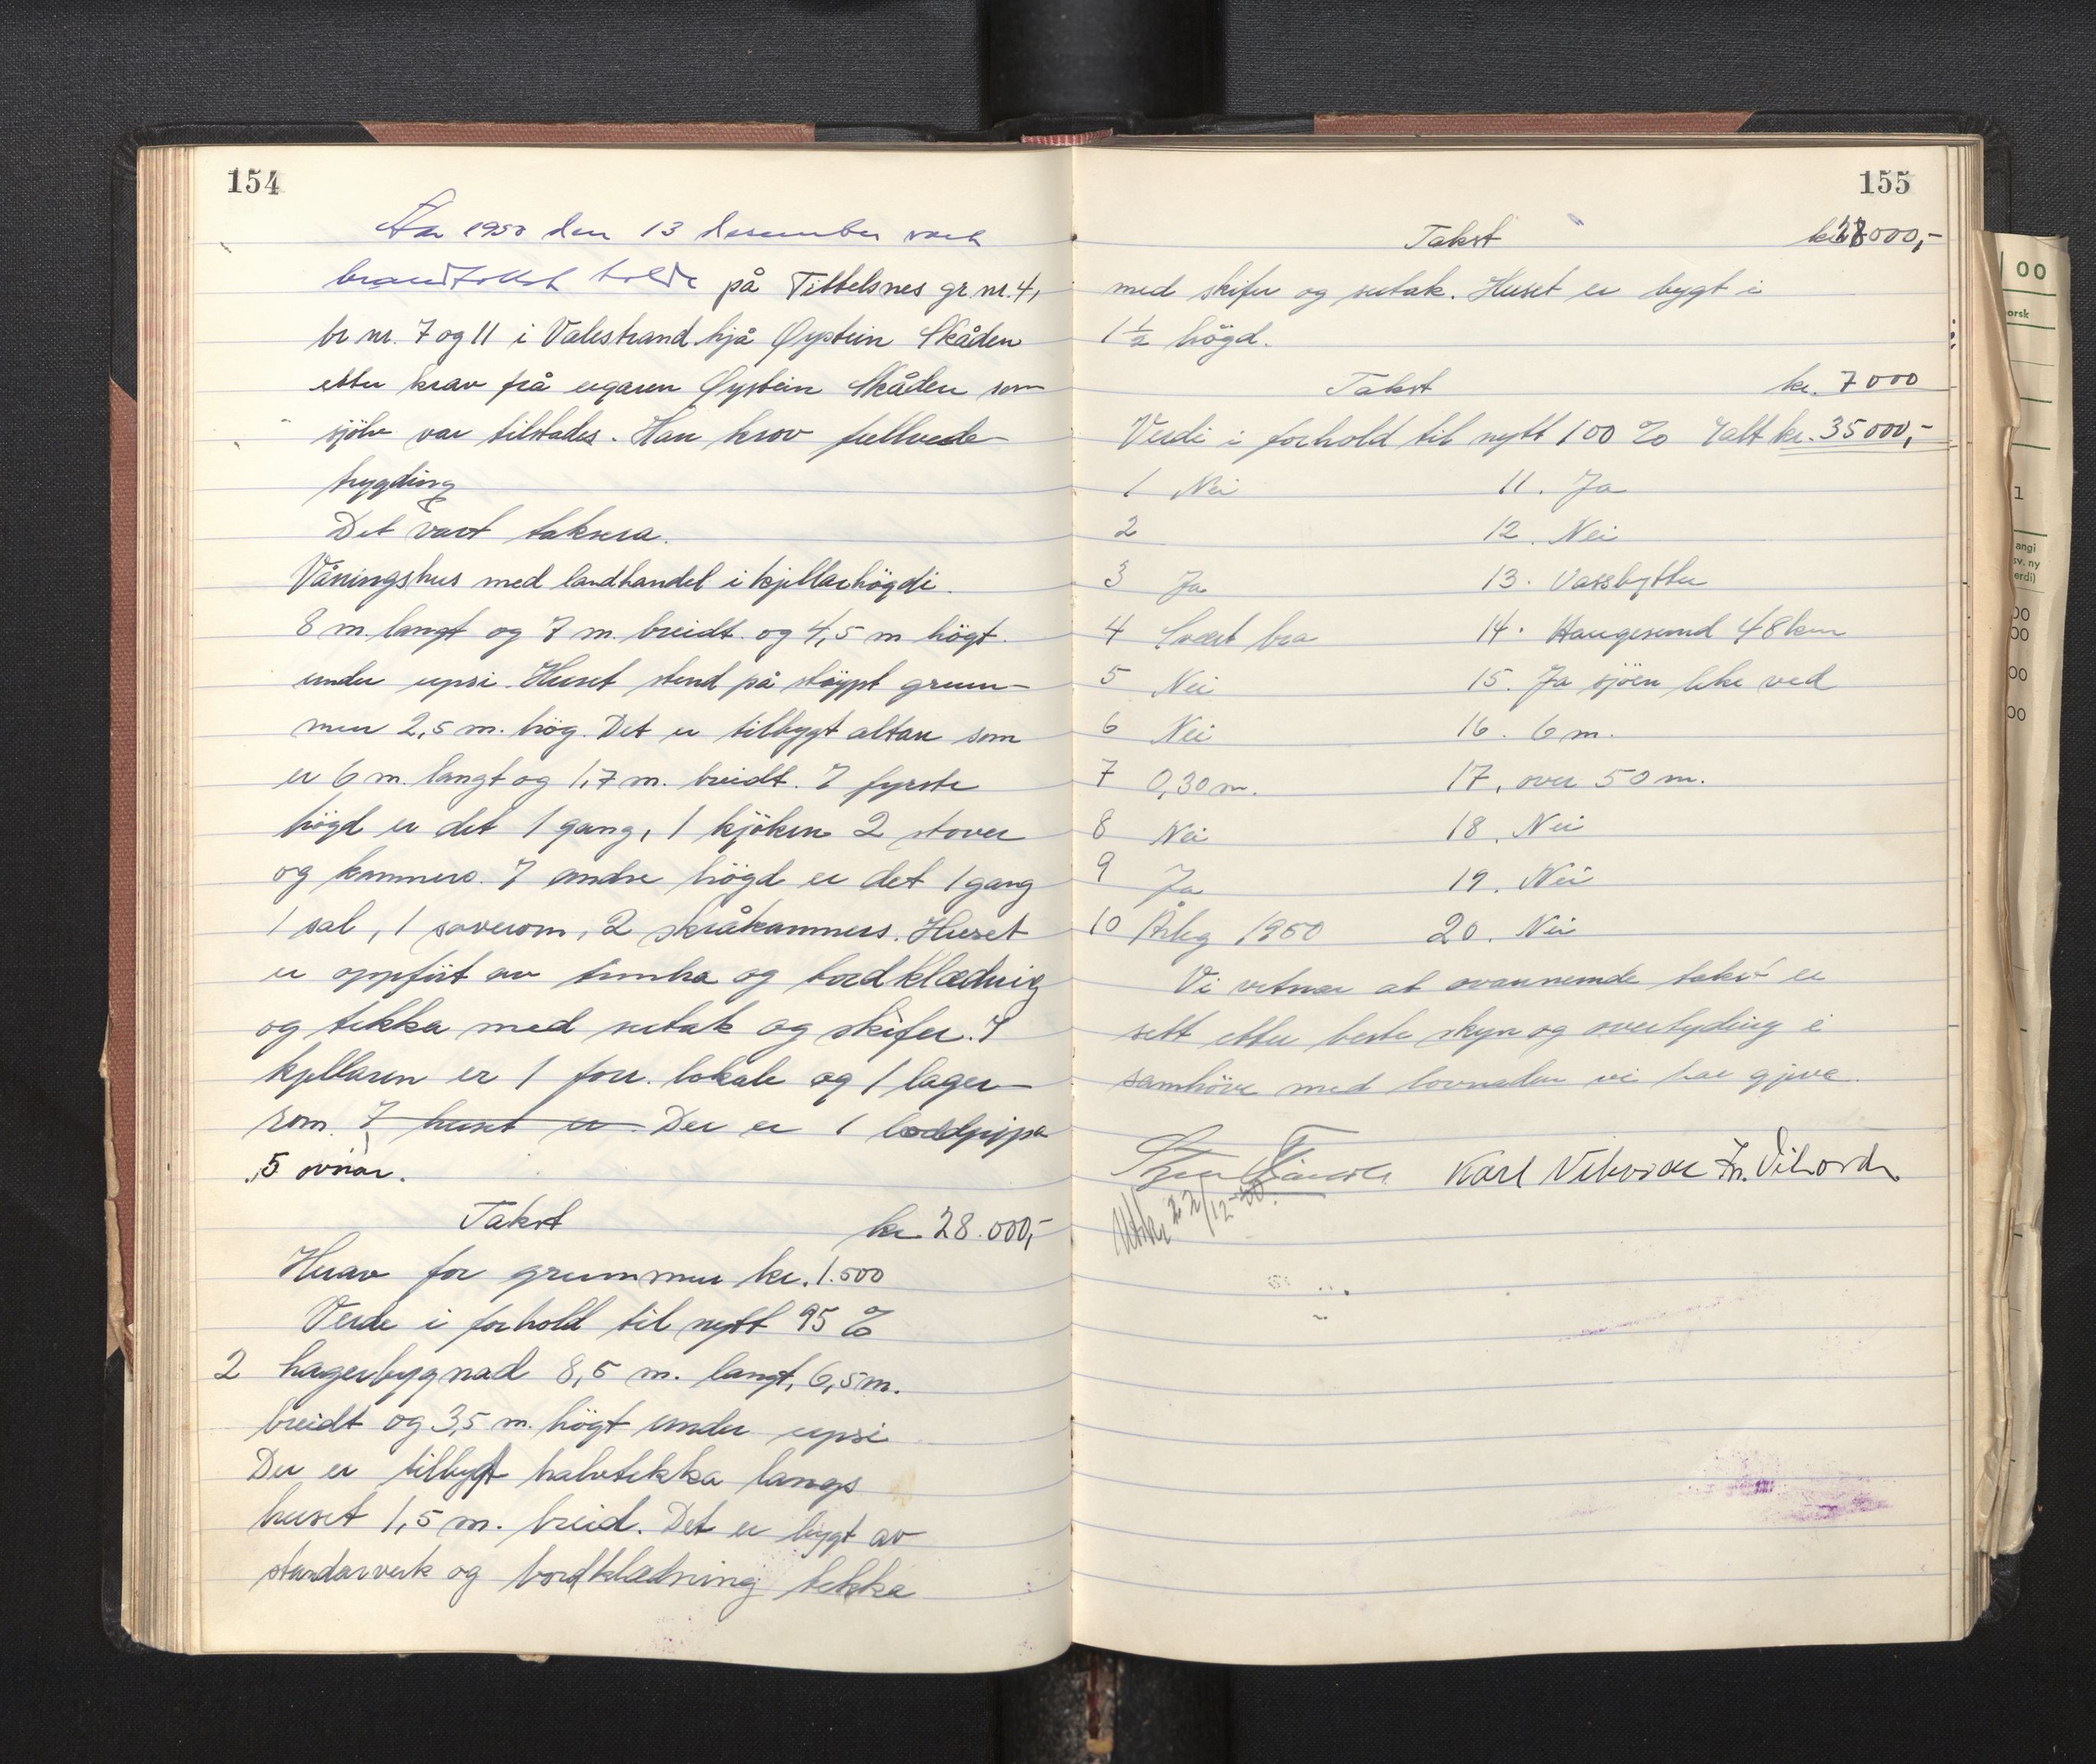 154
År 1950 den 13 desember vart
brandtakst halde på Tittelsnes gr. nr. 4,
br nr. 7 og 11 i Valestrand hjå Øystein Skåden
etter krav frå eigaren Øystein Skåden som
sjölv var tilstades. Han krov fullverde
trygding
Det vart taksera.
Våningshus med landhandel i kjellarhögdi.
8 m. langt og 7 m. breidt. og 4,5 m högt.
under upsi. Huset stend på stöypt grunn-
mur 2,5 m. hög. Det er tilbygt altan som
er 6 m. langt og 1,7 m. breidt. I fyrste
högd er det 1 gang, 1 kjöken 2 stover
og kammers. I andre högd er det 1 gang
1 sal, 1 soverom, 2 skråkammers. Huset
er oppfört av timbra og bordklædnig
og tekka med sutak og skifer. I
kjellaren er 1 forr. lokale og 1 lager-
rom. I huset er Der er 1 loddpipa
5 ovnar.
Takst kr 28.000,-
Herav for grunnmur kr. 1.500
Verde i forhold til nytt 95 %
2 Lagerbygnad 8,5 m. langt, 6,5 m.
breidt og 3,5 m. högt under upsi
Der er tilbygt halvtekka langs
huset 1,5 m. breid. Det er bygt av
standarverk og bordklædning tekka
155
Takst kr 28000,-
med skifer og sutak. Huset er bygt i
1 1/2 högd.
Takst kr. 7000
Verdi i forhold til nytt 100 % Ialt kr. 35000,-
1 Nei 11. Ja
2 12. Nei
3 Ja 13. Vassbytter
4 Svært bra 14. Haugesund 48 km
5 Nei 15. Ja sjöen like ved
6 Nei 16. 6 m.
7 0,30 m. 17. over 50 m.
8 Nei 18. Nei
9 Ja 19. Nei
10 Årleg 1950 20. Nei
Vi vitnar at ovannemde takst er
sett etter beste skyn og overtyding i
samhöve med lovnaden vi har gjeve.
Karl
22/12-50.
00
orsk
1
angi
sv. ny
erdi)
00
00
00
00